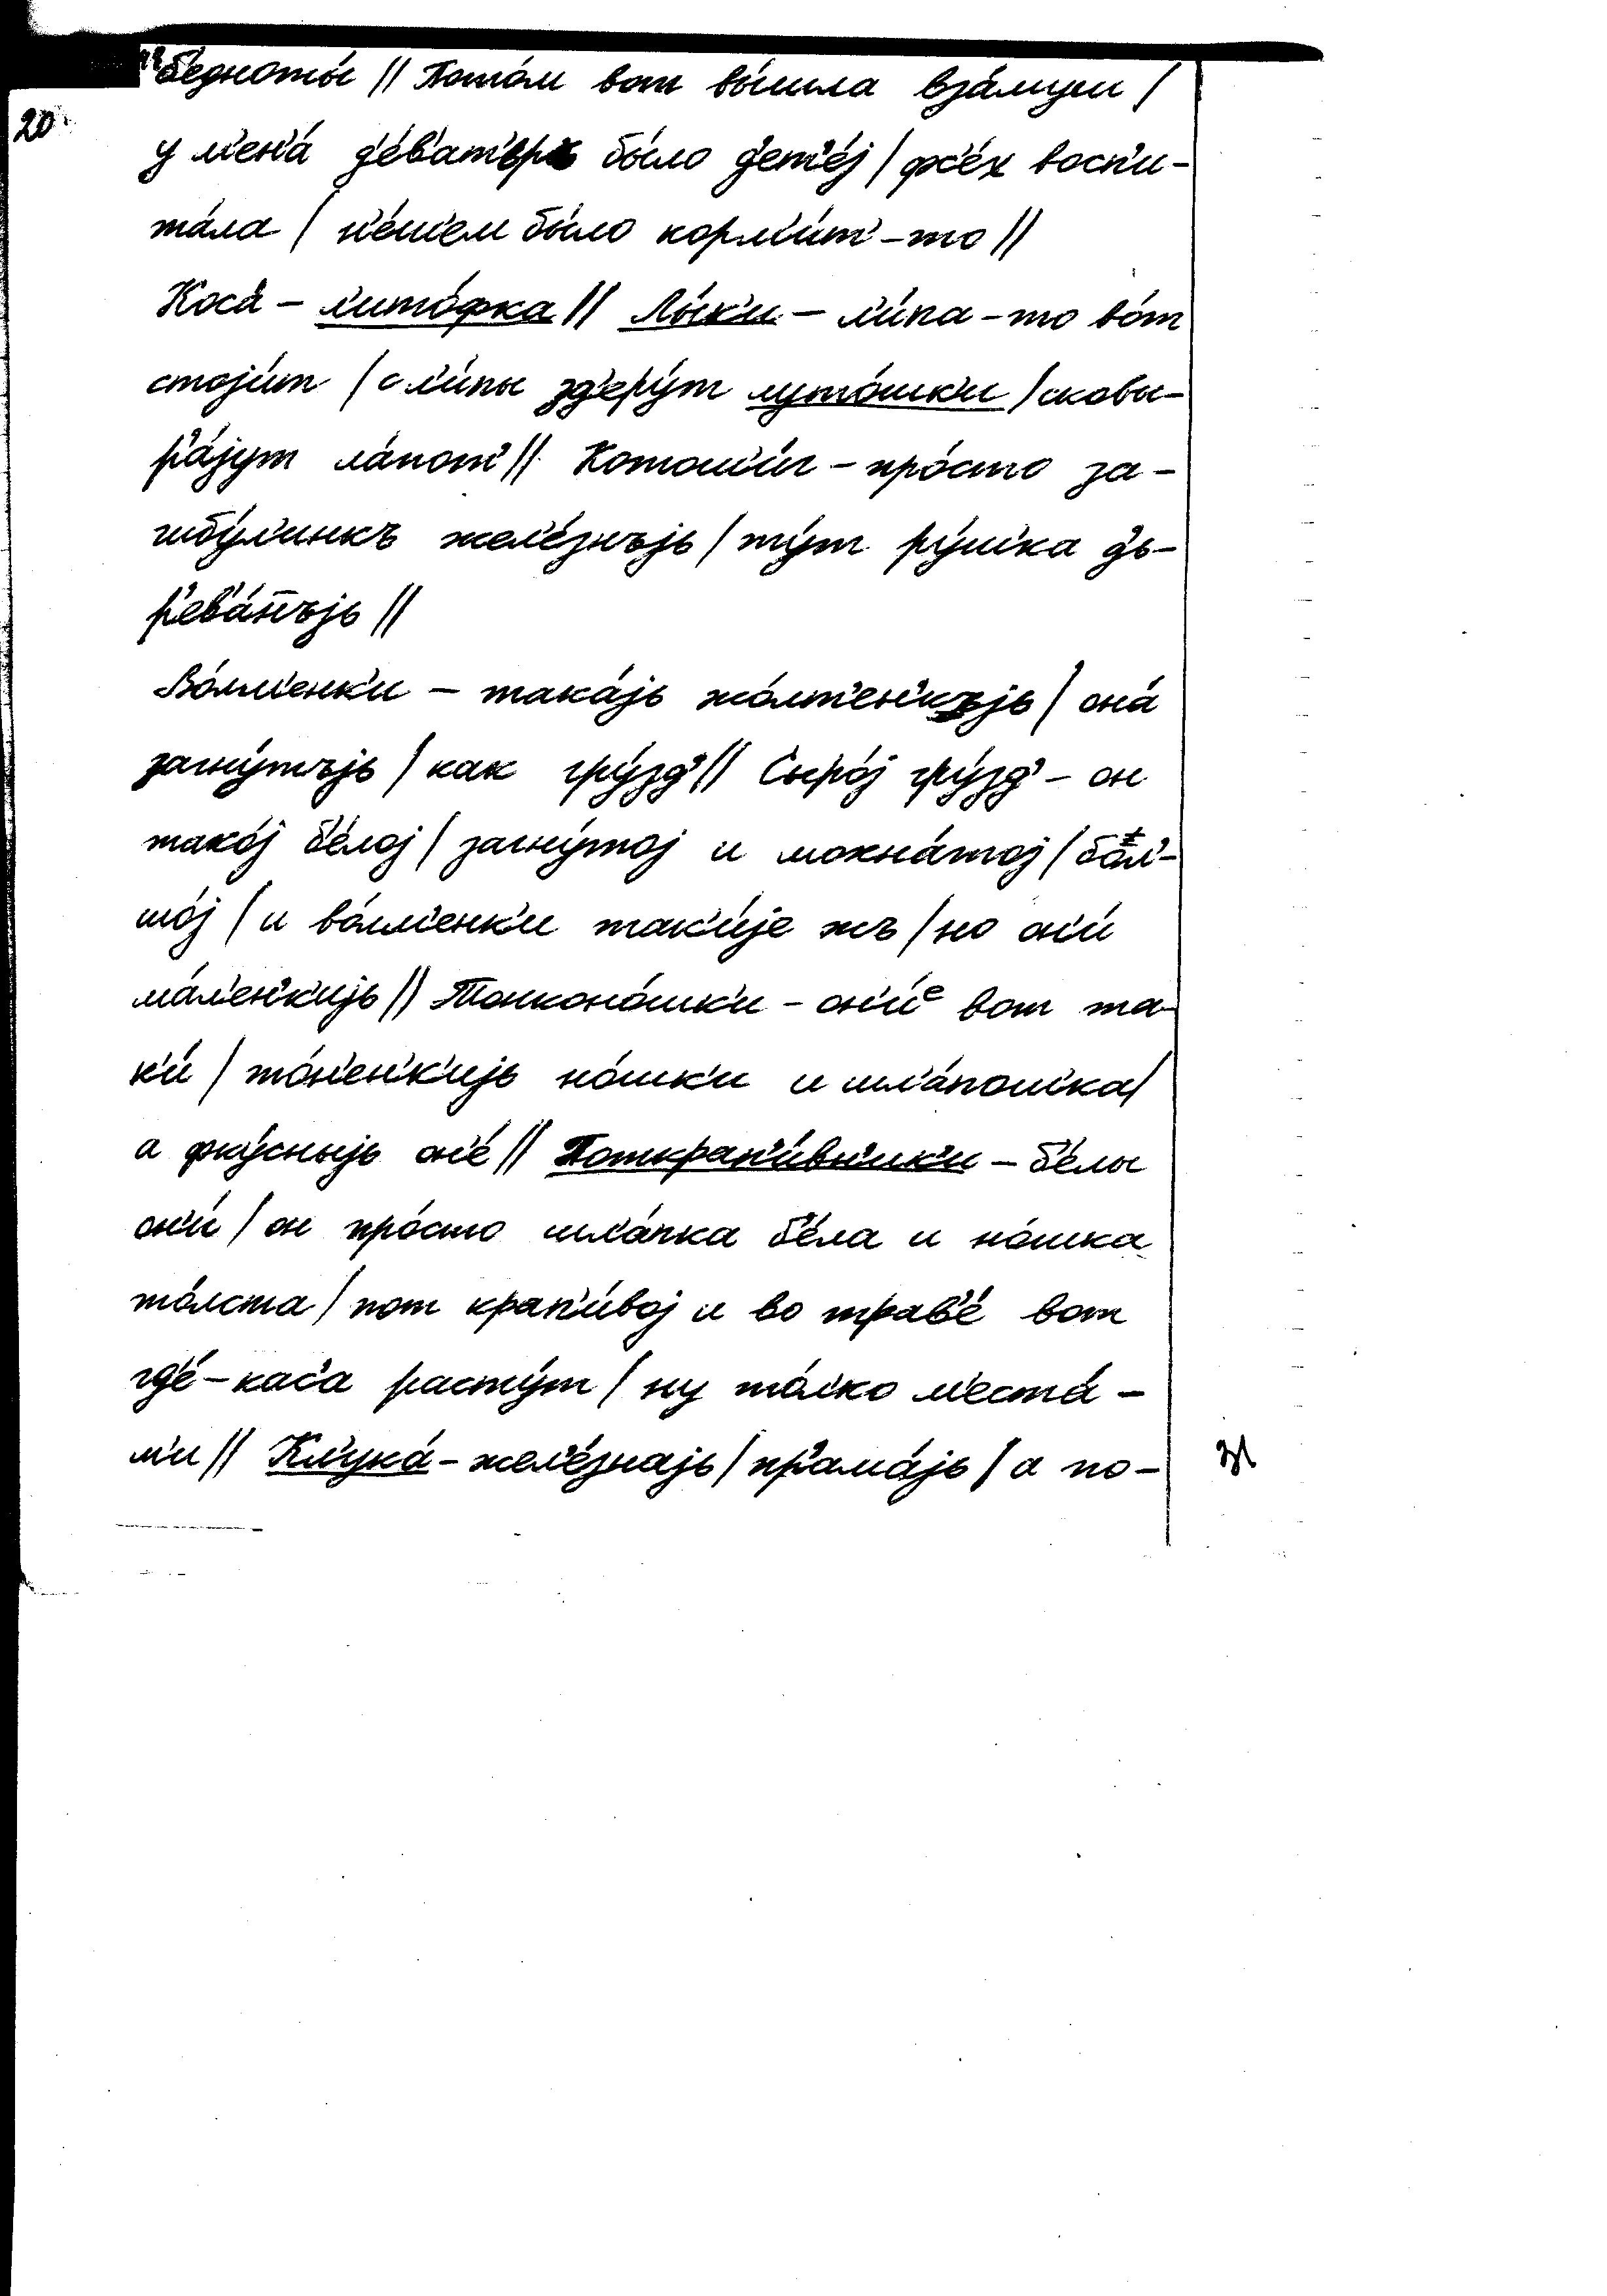 б'едноты́ // Пото́м вот вы́шла вза́муш /
20
у м'ен'а́ д'е́в'ат'ьръ бы́ло д'ет'е́j / фс'е́х восп'и-
та́ла / н'е́ш'ем бы́ло корм'и́т'-то //
Коса́ - л'ито́фка // Лы́к'и - л'и́па-то во́т
стоjи́т / с л'и́пы зд'еру́т луто́шк'и / сковы-
р'а́jут ла́пот' // Котош'и́г - про́сто за-
гибу́л'инкъ жел'е́знъjь / ту́т ру́ш'ка д'ь-
р'ев'а́н̅ъjь //
Во́лм'енк'и - така́jь жо́лт'ен'къjь / она́
загну́тъjь / как гру́зд' // Сыро́j гру́зд' - он
тако́j б'е́лоj / загну́тоj и мохна́тоj / бол'-
шо́j / и во́лм'енк'и так'и́jе жъ / но он'и́
ма́л'ен'к'иjь // Тонконо́шк'и - он'и́ᵉ вот та-
к'и́ / то́н'ен'к'иjь но́шк'и и шл'а́пош'ка /
а фку́сныjь он'е́ // Поткрап'и́вн'ик'и - б'е́лы
он'и́ / он про́сто шл'а́пка б'е́ла и но́шка
то́лста / пот крап'и́воj и во трав'е́ вот
гд'е́-кас'а расту́т / ну то́лко м'еста́-
м'и // Кл'ука́ - жел'е́знаjь / пр'ама́jь / а по-